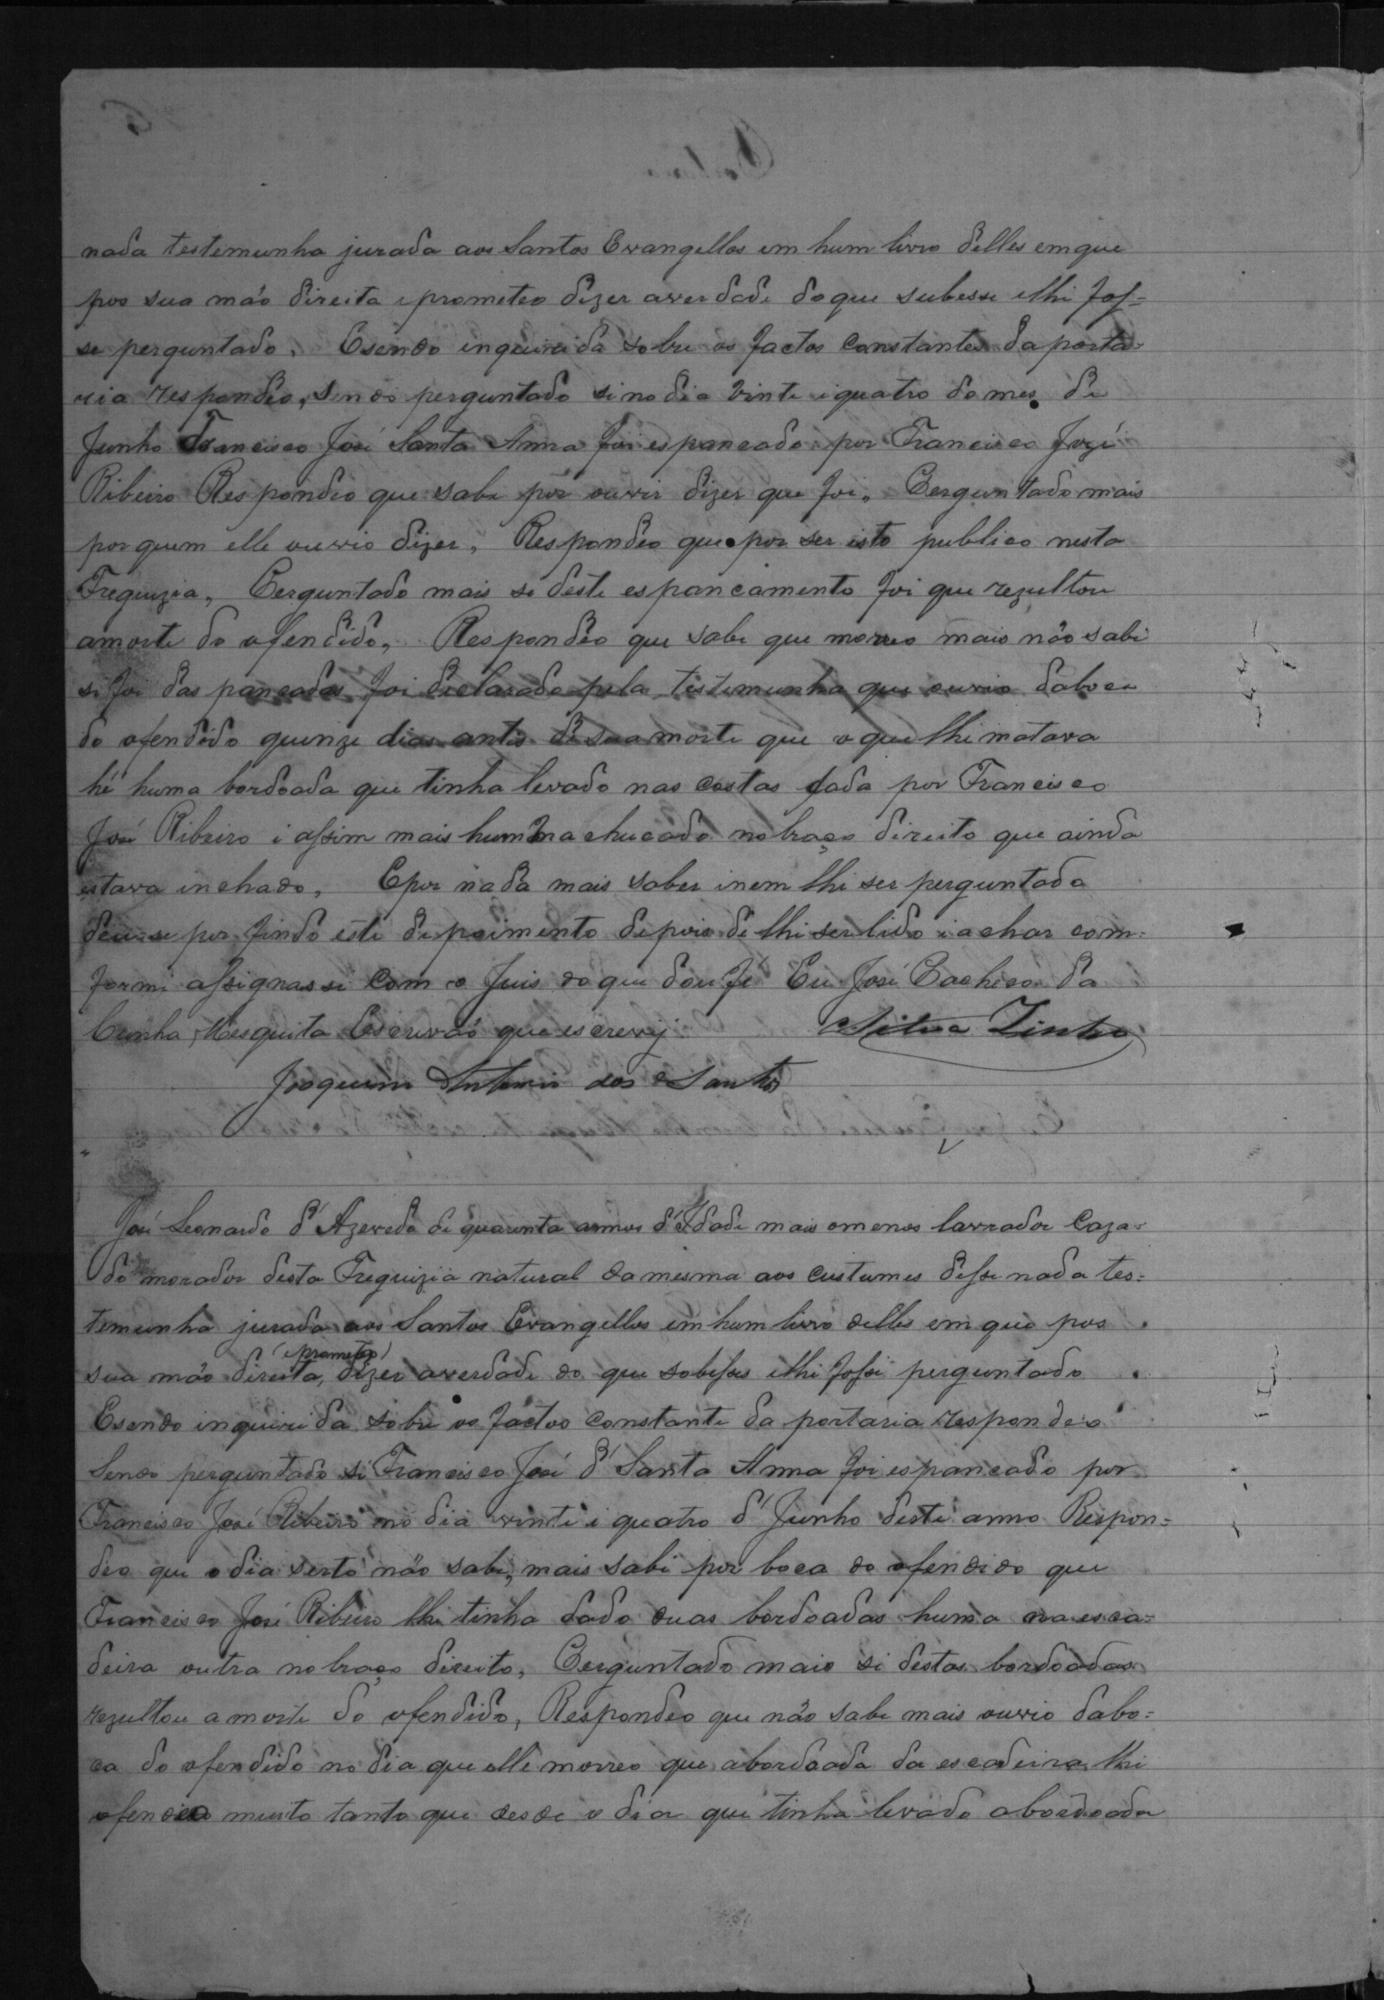 nada testemunha jurada aos Santos Evangellos em hum livro delles emque
pos sua mão direita i prometeo dizer averdade doque subesse ilhi fos=
se perguntado. Esendo inquirida sobre os factos constantes da porta=
ria respondeo, sendo perguntado si no dia vinte iquatro do mes de
Junho Francisco José Santa Anna foi espancado por Francisco Jozé
Ribeiro Respondeo que sabe por ouvir dizer que foi. Perguntado mais
por quem elle ouvio dizer, Respondeo que por ser isto publico nesta
Freguizia, Perguntado mais si deste espancamento foi que rezultou
amorte do ofendido, Respondeo que sabe que morreo mais não sabi
si foi das pancadas, foi declarado pela testemunha que ouvio daboca
do ofendido quinze dias antes de sua morte que o que lhi matava
hé huma bordoada que tinha levado nas costas dada por Francisco
José Ribeiro i assim mais hum machucado nobraço direito que ainda
estava inchado, Epor nada mais saber inem lhi ser perguntado
deu-se por findo este depoimento depois de lhi ser lido i achar com=
formi assignassi com o Juis doque dou fé Eu José Pacheco da
Cunha Mesquita Escrivão que escrevij Silva Zinho
Joaquim Antonio dos Santos
José Leonardo d'Azevedo de quarenta annos d'Idade mais omenos lavrador Caza=
do morador desta Freguizia natural damesma aos custumes disse nada tes=
temunha jurada aos Santos Evangellos em hum livro delles em que pos
sua mão direita, (i prometeo) dizer averdade do que sobesse ilhi fosse perguntado
Esendo inquirida sobre os factos constante da portaria respondeo
Sendo perguntado si Francisco José d'Santa Anna foi espancado por
Francisco José Ribeiro no dia vinte i quatro d'Junho deste anno Respon=
deo que o dia serto não sabe, mais sabi por boca do ofendido que
Francisco José Ribeiro lhi tinha dado duas bordoadas huma na esca=
deira outra nobraço direito, Perguntado mais si destas bordoadas
rezultou amorte do ofendido, Respondeo que não sabe mais ouvio dabo=
ca do ofendido no dia que elle morreo que abordoada da escadeira lhi
ofendeo muito tanto que desde o dia que tinha levado abordoada